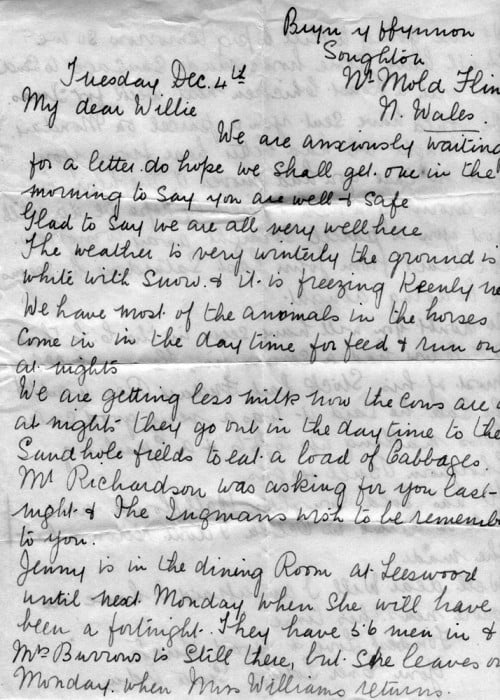 Bryn y ffynnon
Soughton
Nr Mold Flin
N. Wales.
Tuesday Dec. 4th
My dear Willie
We are anxiously waiting
for a letter. do hope we shall get one in the
morning to say you are well & safe
Glad to say we are all very well here
The weather is very winterly the ground is
white with Snow. & it is freezing Keenly
We have most of the anomals in the horses
Come in in the day time for feed & run on
at nights
We are getting less milk now the cows are
at nights they go out in the daytime to the
Sandhole fields to eat a load of Cabbages.
Mr Richardson was asking for you last
night & The Ingmans wish to be rememb
to you.
Jenny is in the dining Room at Leeswood
until next Monday when She will have
been a fortnight. They have 56 men in &
Mrs Burrows is Still there, but She leaves on
Monday when Miss Williams returns.